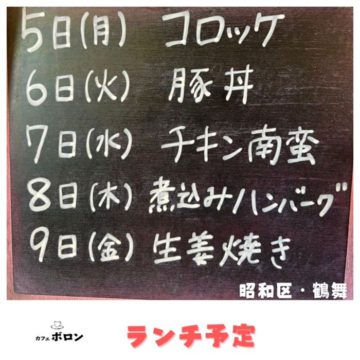 5日(月) コロッケ
6日(火) 豚丼
7日(水) チキン南蛮
8日(木) 煮込みハンバーグ
9日(金) 生姜焼き
昭和区・鶴舞
カフェ ボロン
ランチ予定